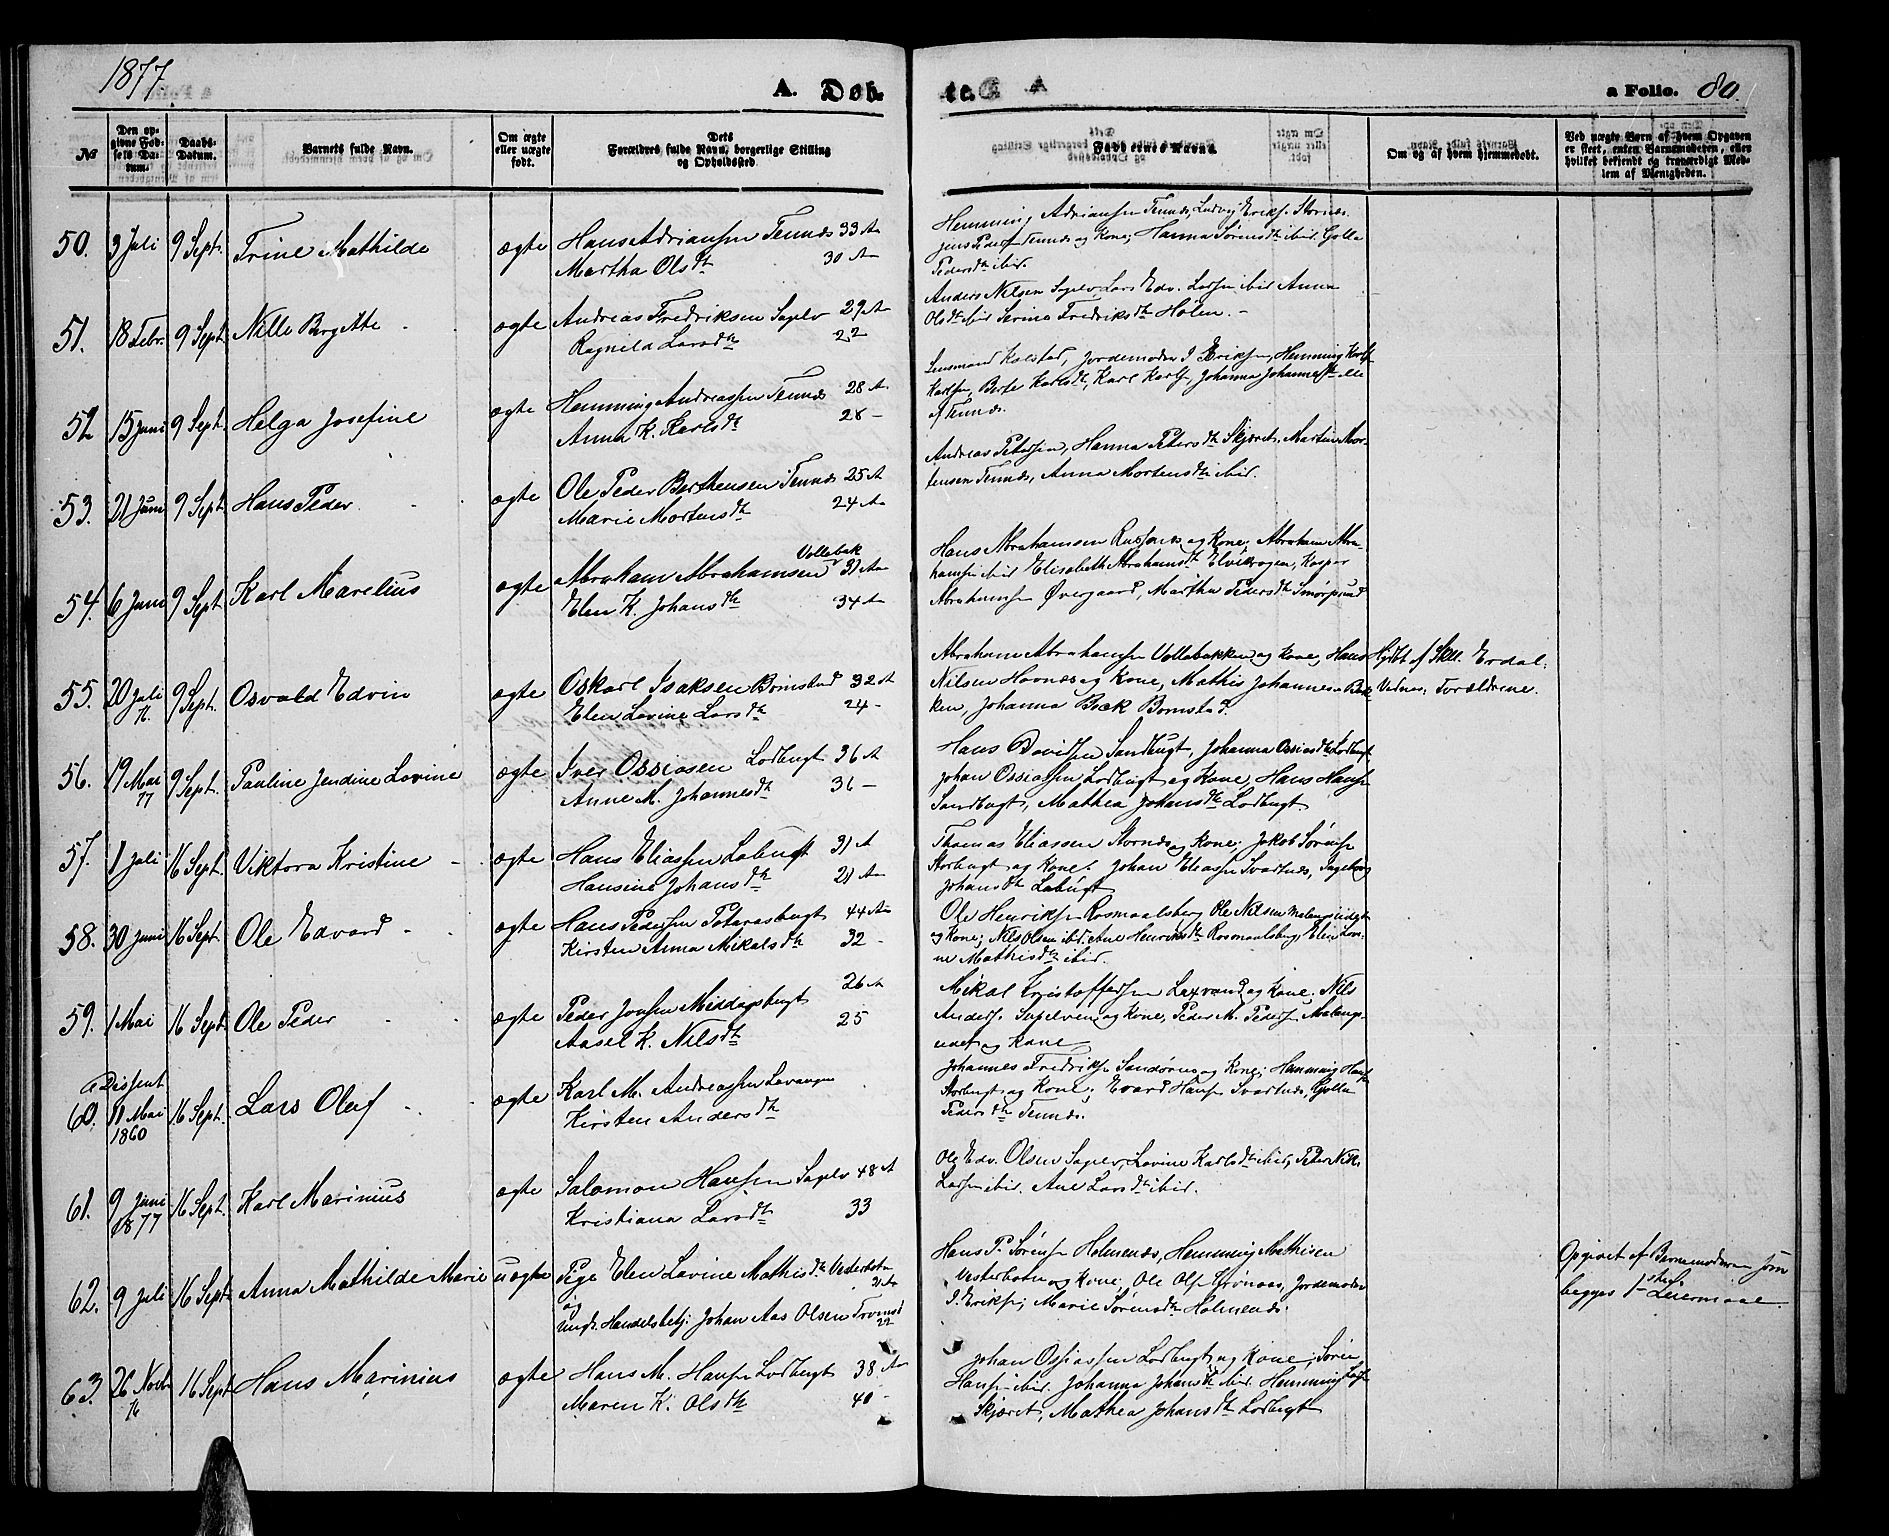 1877.
A. Døb-
te.
a Folio. 80.
№
Den op-
givne Fød-
sels Da-
tum.
Daabs-
Datum.
Barnets fulde Navn.
Om ægte
eller uægte
født.
Dets
Forældres fulde Navn, borgerlige Stilling
og Opholdssted
Faddernes Navne
Om og af hvem hjemmedøbt.
Ved uægte Børn af hvem Opgaven
er skeet, enten Barnemoderen, eller
hvilket bekjendt og troværdigt Med-
lem af Menigheden.
50. 3 Juli 9 Sept. Trine Mathilde ægte Hans Adriansen Tennes 33 A
Martha Olsdtr 30 A
Hemming Adriansen Tennes, Ludvig Eriks. Stornæs.
Jens Peders. Tennes og Kone, Hanna Sørensdtr ibid. Golla
Pedersdtr ibid.
51. 18 Febr. 9 Sept. Nelle Bergitte ægte Andreas Fredriksen Sagelv 29 A
Ragnild Larsdtr 22
Anders Nilsen Sagelv, Lars Edv. Larsen ibid Anna
Olsdtr ibid Serina Fredriksdtr Holen. -
52 15 Juni 9 Sept. Helga Josefine ægte Hemming Andreassen Tennes 28 A
Anna K. Karlsdtr 28 -
Lensmand Kolstad, Jordemoder I Eriksen, Hemming Karls.
Karlsen, Berte Karlsdtr, Karl Karls. Johanna Johannesdtr alle
af Tennes.
53. 21 Juni 9 Sept. Hans Peder ægte Ole Peder Berthensen Tennes 25 A
Marie Mortensdtr 24 A
Andreas Petersen, Hanna Petersdtr Skjæret, Martin Mor-
tensen Tennes, Anna Mortensdtr ibid.
54. 6 Juni 9 Sept. Karl Marelius ægte Abraham Abrahamsen Vollabak 31 A
Elen K. Johansdtr 34 A
Hans Abrahamsen Russenes og Kone, Abraham Abra-
hams. ibid Elisabeth Abrahamsdtr Elvekrogen, Kaspar
Abrahams. Øvergaard, Martha Pedersdtr Smørsund
55. 20 Juli 76 9 Sept. Osvald Edvin ægte Oskarl Isaksen Bomstad 32 A
Elen Lovine Larsdtr 24 -
Abraham Abrahamsen Vollabakken og Kone, Hans
Nilsen Havnnes og Kone, Mathis Johannesen Bak-
ken, Johanna Bæk Bomstad.
Hjdbt af Skll. Erdal.
Vidner: Forældrene.
56. 19 Mai 77 9 Sept. Pauline Jendine Lovine ægte Iver Ossiasen Lodbugt 36 A
Anne M. Johannesdtr 36 -
Hans Davidsen Sandbugt, Johanna Ossiasdtr Lodbugt
Johan Ossiassen Lodbugt og Kone, Hans Hans.
Sandbugt, Mathea Johansdtr Lodbugt.
57. 1 Juli 16 Sept. Viktora Kristine ægte Hans Eliassen Labugt 31 A
Hansine Johansdtr 21 A
Thomas Eliassen Stornæs og Kone, Jakob Sørens.
Storbugt og Kone. Johan Eliassen Svartnes, Ingeborg
Johansdtr Labugt
58. 30 Juni 16 Sept. Ole Edvard ægte Hans Pedersen Potarasbugt 44 A
Kirsten Anna Mikalsdtr 32 -
Ole Henriks. Rosmaalsberg Ole Nilsen Malangseidet
og Kone; Nils Olsen ibid. Ane Henriksdtr Rosmaalsberg, Elen Lovi-
ne Mathisdtr ibid.
59. 1 Mai 16 Sept. Ole Peder ægte Peder Jonsen Middagsbugt 26 A
Aasel K. Nilsdtr 25
Mikal Kristoffersen Laxvand og Kone. Nils
Anders. Sagelven og Kone, Peder M. Peders. Malangs-
eidet og Kone
Dissent
60. 11 Mai 1860 16 Sept. Lars Oluf ægte Karl M. Andreassen Lavangen
Kirsten Andersdtr
Johannes Fredriks. Sandøren og Kone; Hemming Hans.
Storbugt og Kone; Evard Hans. Svartnes, Golla
Pedersdtr Tennes.
61. 9 Juni 1877 16 Sept. Karl Marinius ægte Salamon Hansen Sagelv 48 A
Kristiana Larsdtr 33
Ole Edv. Olsen Sagelv, Lovine Karlsdtr ibid, Peder Nik.
Larsen ibid. Ane Larsdtr ibid.
62. 9 Juli 16 Sept. Anna Mathilde Marie uægte Pige Elen Lovine Mathisdtr Vesterbotn 21 A
og
Ungk. Handelsbetj. Johan Aas Olsen Tromsø 22
Hans P. Sørens. Holmenes, Hemming Mathisen
Vesterbotn og Kone, Ole Ols. Strønaas, Jordemoder
I. Eriks., Marie Sørensdtr Holmenes.
Opgivet af Barnemoderen som
begges 1ste Leiermaal.
63. 26 Novb 76 16 Sept. Hans Marinius ægte Hans M. Hansen Lodbugt 38 A
Maren K. Olsdtr 40 -
Johan Ossiassen Lodbugt og Kone, Søren
Hans. ibid. Johanna Johansdtr ibid. Hemming Lars.
Skjæret, Mathea Johansdtr Lodbugt